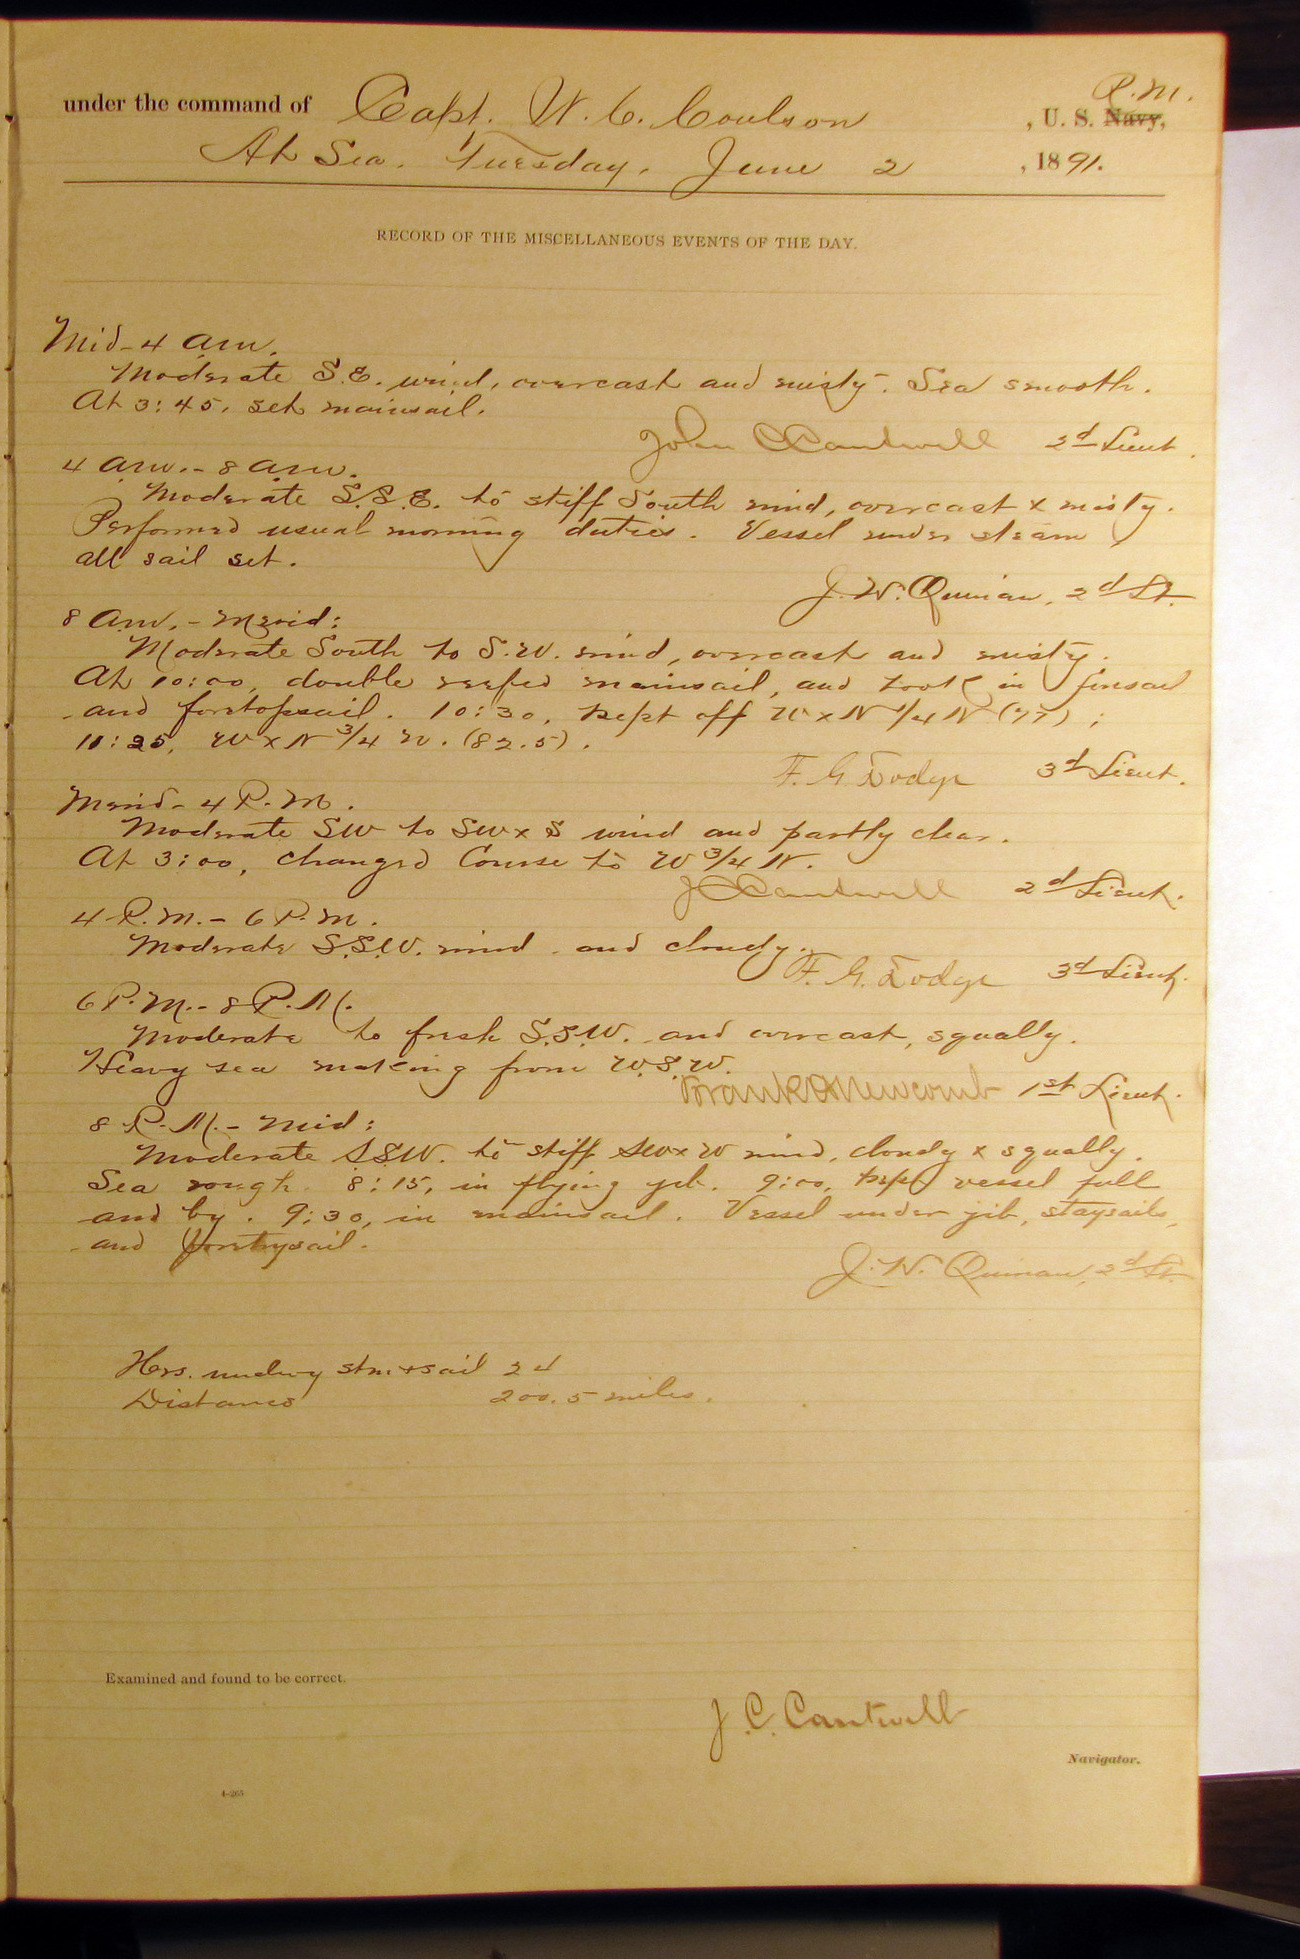 R.M.
under the command of Capt. W. C. Coulson , U. S. Navy,
At Sea. Tuesday, June 2 , 1891.
RECORD OF THE MISCELLANEOUS EVENTS OF THE DAY.
Mid - 4 am.
Moderate S.E. wind, overcast and misty. Sea smooth.
At 3:45, set mainsail.
John C Cantwell 2d Lieut.
4 am. - 8 am.
Moderate S.S.E. to stiff South wind, overcast x misty.
Performed usual morning duties. Vessel under steam,
all sail set.
J. W. Quinan, 2d Lt.
8 Am. - Merid:
Moderate South to S.W. wind, overcast and misty.
At 10:00, double reefed mainsail, and took in foresail
and foretopsail. 10:30, kept off W x N 1/4 N (77);
11:25, W x N 3/4 N. (82.5).
F. G. Dodge 3d Lieut.
Merid - 4 P.M.
Moderate SW to SW x S wind and partly clear.
At 3:00, changed Course to W 3/4 N.
J C Cantwell 2d Lieut.
4 P.M. - 6 P.M.
Moderate S.S.W. wind and cloudy.
F. G. Dodge 3d Lieut.
6 P.M. - 8 P.M.
Moderate to fresh S.S.W. and overcast, squally.
Heavy sea making from W.S.W.
Frank H Newcomb 1st Lieut.
8 P.M. - Mid:
Moderate S.S.W. to stiff SW x W wind, cloudy x squally.
Sea rough. 8:15, in flying jib. 9:00, kept vessel full
and by. 9:30, in mainsail. Vessel under jib, staysails,
and foretrysail.
J. W. Quinan, 2d Lt.
Hrs. undwy stm + sail 24
Distance 200.5 miles.
Examined and found to be correct.
J. C. Cantwell
Navigator.
4-265